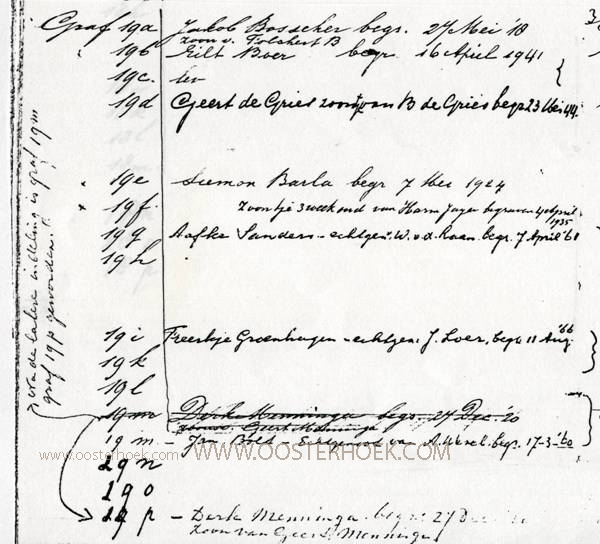 Graf 19a Jakob Bosscher begr. 27 Mei '18
zoon v. Folchert B
19b Eilt Boer begr. 16 April 1941
19c. lev
19d Geert de Gries zoontje van B de Gries begr 23 Mei 44.
19e Siemon Barla begr 7 Mei 1924
19f. Zoontje 3 weken oud van Harm Jager begraven 4 April 1935
19g Aafke Sanders - echtgen. W. v.d. Haan. begr. 7 April '61
19h
19i Freerkje Groenhagen - echtgen. J. Loer, begr 11 Aug. '66
19k
19l
19m Derk Menninga begr. 27 Dec. '20
zoon v. Geert Menninga
19m - Jan Bolt - Echtgenoot van A. Werel. begr. 17-3-'60
www.oosterhoek.com www.OOSTERHOEK.COM
19n
19o
19p - Derk Menninga. begr. 27 Dec. 20
Zoon van Geert Menninga
na de latere indeling is graf 19m
graf 19p geworden.